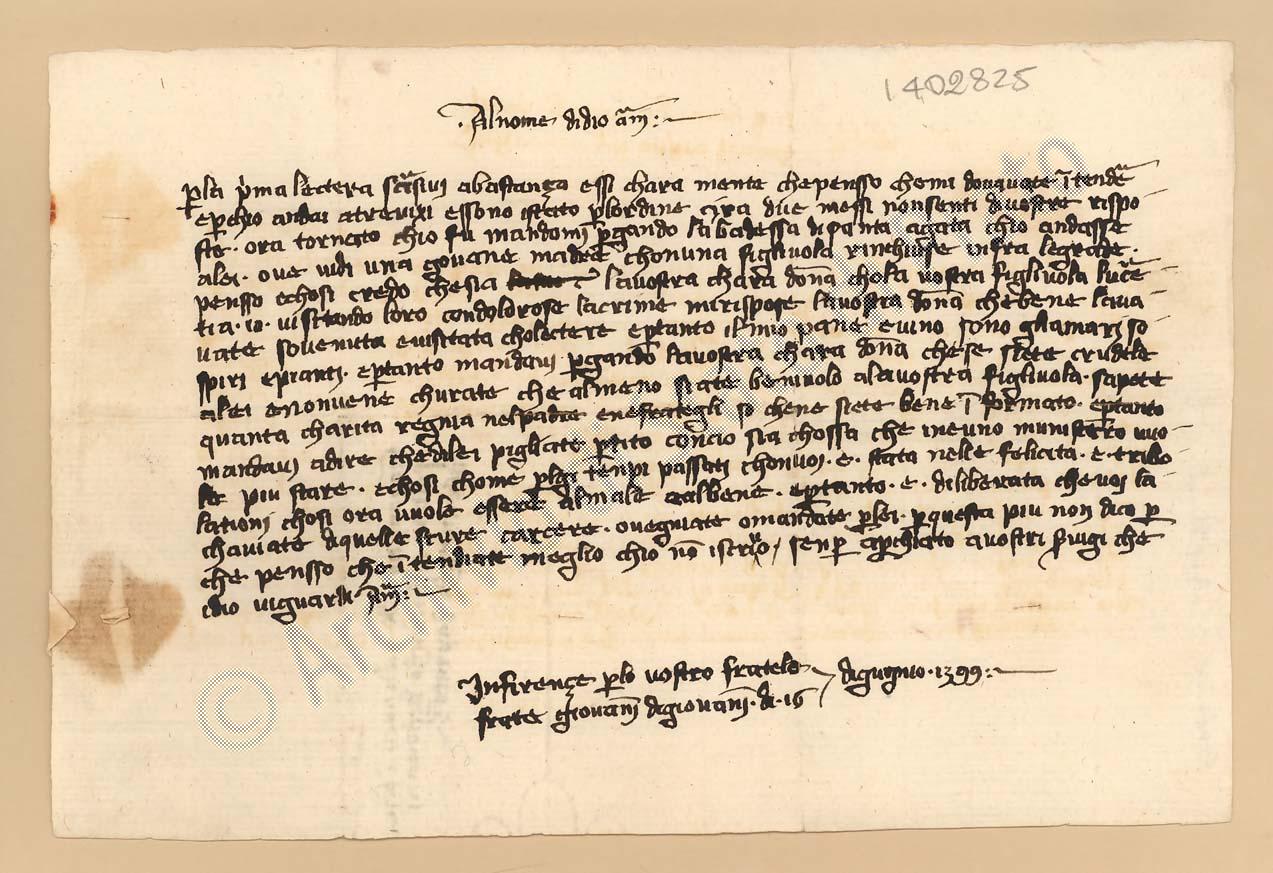 1402825
Al nome didio am̄:
ꝑla pʳima lectera scʳissivi abastança essi chara mente chepensso chemi donavate ītende
eꝑchio andai atrevixi essono istato ꝑlordine cira due messi nonsenti divostre rispo
ste · ora tornato chio fu mandomi ꝑgando labadessa disanta agata chio andasse
alei · ove vidi una govane madre chonuna figlivola rinchiuse infra legrate ·
pensso echosi credo chesia lavostra chara dōna chola vostra figlivola luce
tia · io · visitando loro condolorose lacrime mirispose lavostra dōna chebene lava
vate sovenuta evisitata cholectere eꝑtanto ilmio pane evino sono gliamari so
spiri epianti · eꝑtanto mandavi ꝑgando lavostra chara dōna chese siete crudele
alei enonvene churate che almeno siate benivolo alavostra figlivola · sapete
quanta charita regnia nelpadre enefrategli so chene siete bene ī formato · eꝑtanto
mandavi adire chedilei pigliate ꝑtito concio sia chossa che ineuno munistero vuo
le piu stare · echosi chome ꝑlgi tenpi passati chonvoi · e · stata nelle felicita · e · tribo
lationi chosi ora vuole essere almale ealbene · eꝑtanto · e · diliberata chevoi la
chaviate diquelle scure carcere · ovegniate omandate ꝑlei · ꝑquesta piu non dico ꝑ
che pensso che ītendiate meglio chio nō iscrivo / senꝑ aparechiato avostri ꝑvigi che
idio viguardi am̄:
Jnfirençe ꝑlo vostro fratelo
frate giovanī digiovanī · di · 16
digugnio · 1399 :
© Archivio